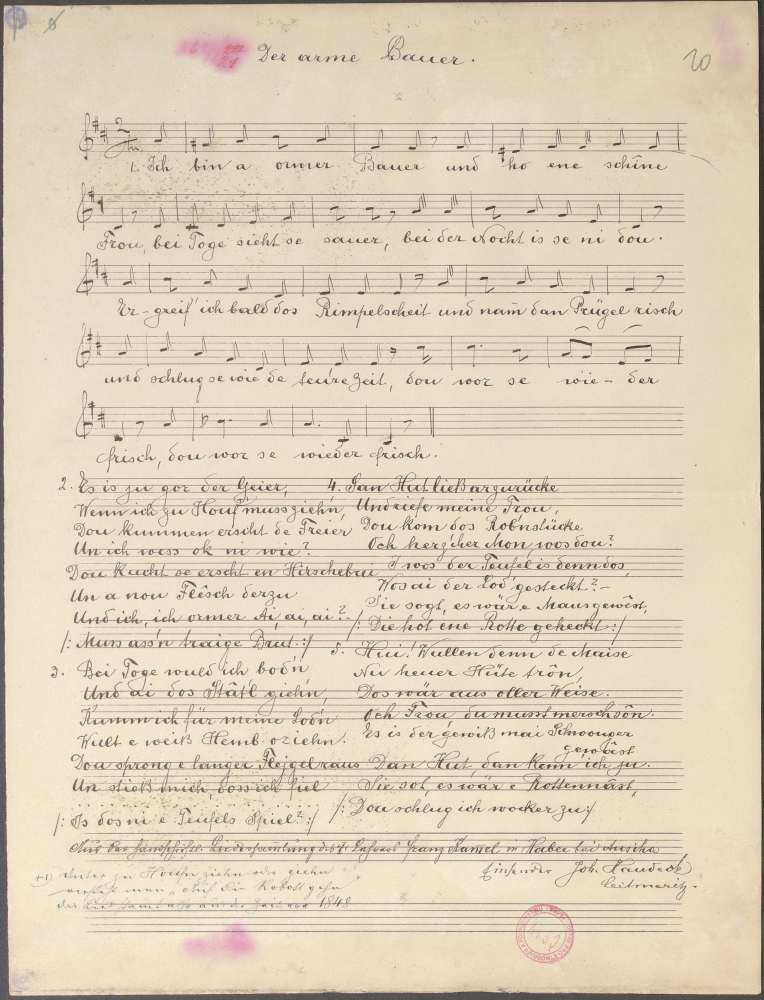 Der arme Bauer.
20
1. Ich bin a ormer Bauer und ho ene schîne
Frou, bei Toge sieht se sauer, bei der Nocht is se ni dou.
Er-greif' ich bald dos Rimpelscheit und nam̄ dan Prügel risch
und schlug se wie de teure Zeit, dou wor se wie-der
frisch, dou wor se wieder frisch.
2. Es is zu gor der Geier,
Wenn ich zu Houf muss ziehn,
Dou kummen erscht de Freier
Un ich wess ok ni wie?
Dou kucht se erscht en Hirschebrui
Un a nou Flêsch derzu
Und ich, ich ormer Ai, ai, ai?
/: Muss ass'n traige Brut. :/
3. Bei Toge wuld ich bod'n
Und ai dos Statl giehn,
Kumm ich für meine Lod'n
Wult e weiß Hemb oziehn.
Dou sprong e langer Flejgel raus
Un stieß mich, doss ich fiel
/: Is dos ni e Teufels Spiel? :/
4. San Hut ließ ar zurücke
Und riefe meine Frou,
Dou kom dos Robnstücke
Och herz'cher Mon wos dou?
I wos der Teufel is denn dos,
Wos ai der Lod' gesteckt? –
Sie sogt, es wär e Mausgewêst,
/: Die hot ene Rotte geheckt :/
5. Hui! Wullen denn de Maise
Nu heuer Hüte trôn,
Dos wär aus oller Weise.
Och Frou, du musst mersch sôn.
Es is der gewiß mai Schwouger
gewâst
Dan Hut, dan kenn ich ju.
Sie sot, es wär e Rottennast,
/: Dou schlug ich wocker zu :/
Aus der handschriftl. Liedersammlung des Franz Hampel in Haber bei Auscha
Einsender Joh. Kaudeck
Leitmeritz.
+) Unter zu Houfn ziehn oder giehn
man "auf die Robott gehn
das Lied stamt also aus der Zeit vor 1848